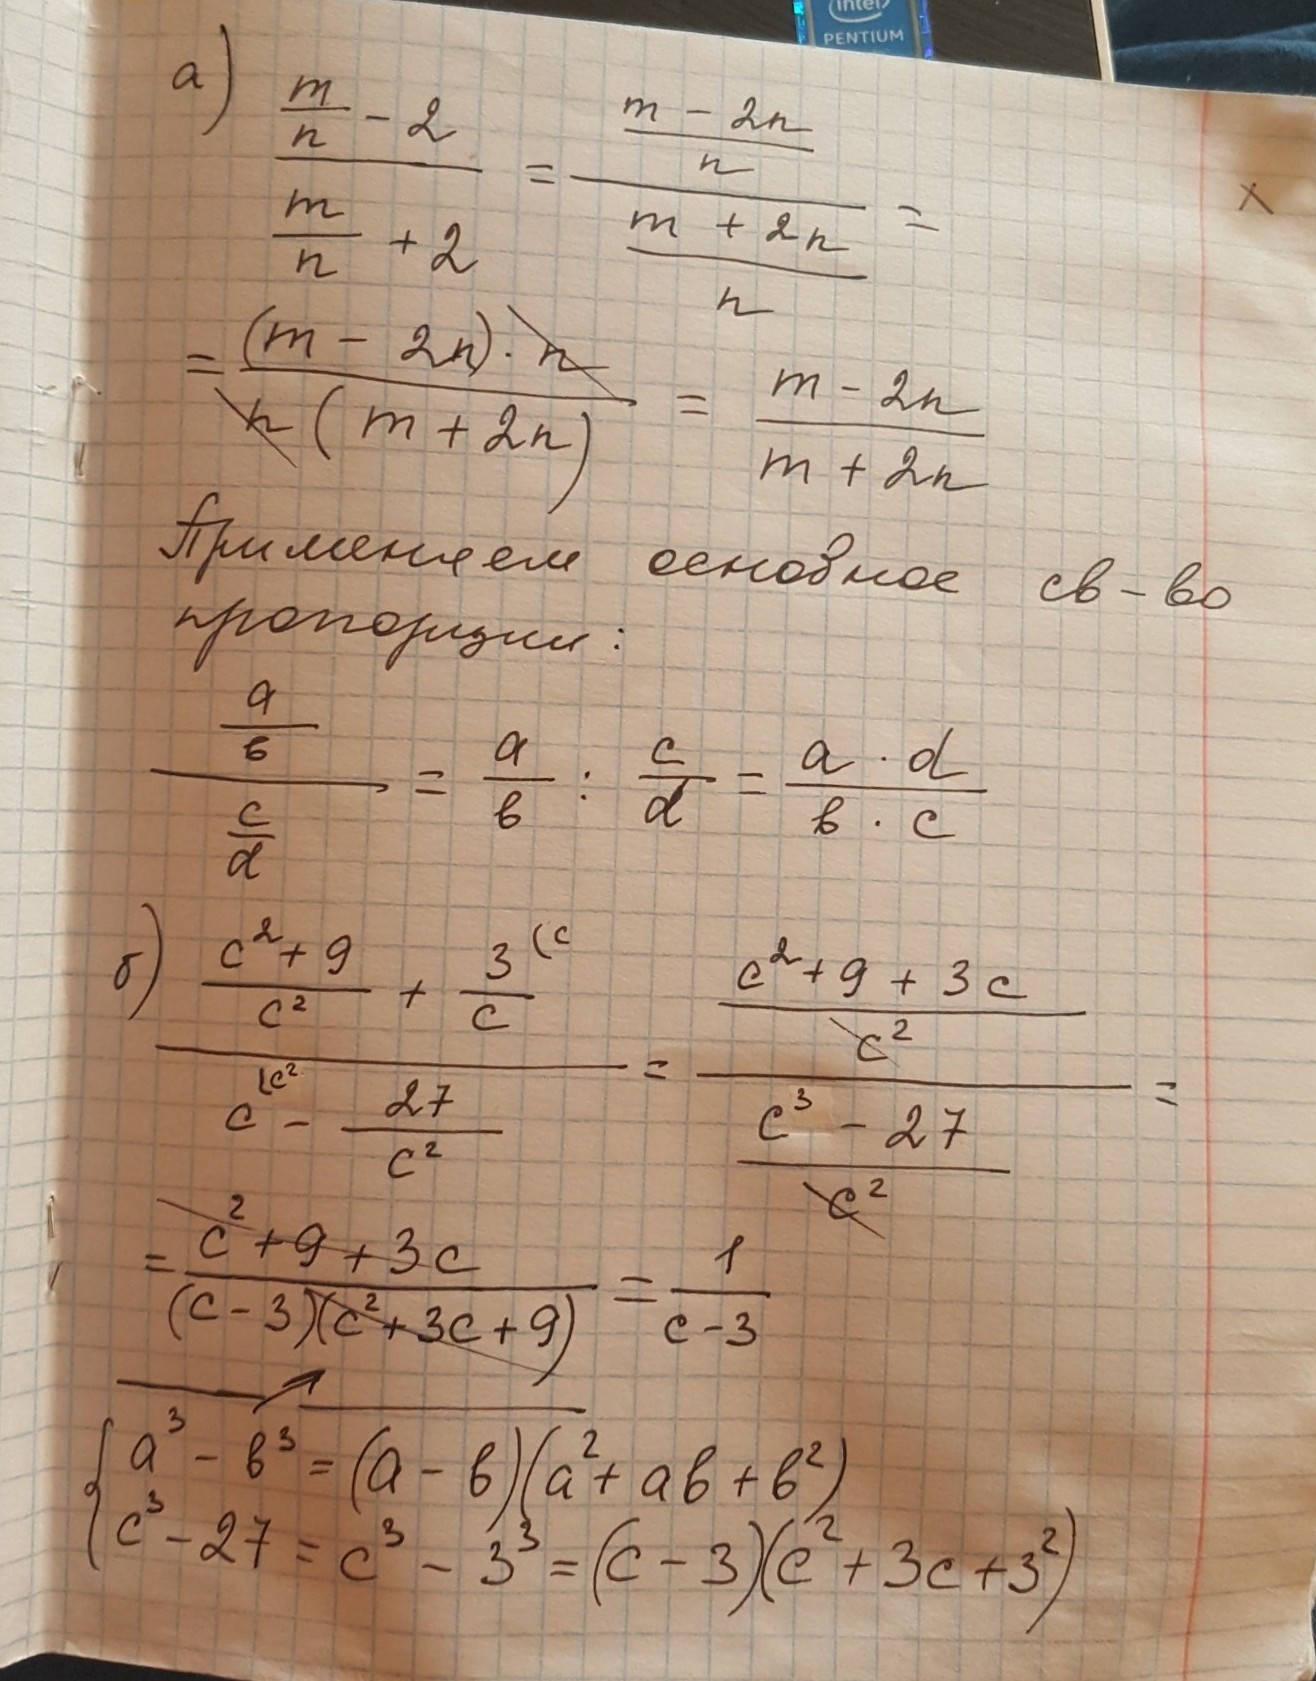 intel
PENTIUM
а) (m/n - 2)/(m/n + 2) = ((m - 2n)/n)/((m + 2n)/n) =
x
= ((m - 2n) · n)/(n (m + 2n)) = (m - 2n)/(m + 2n)
Применяем основное св-во
пропорции:
(a/в)/(c/d) = a/в : c/d = (a · d)/(в · c)
б) ((c² + 9)/c² + 3/c (c)/(c (c² - 27/c²) = ((c² + 9 + 3c)/c²)/((c³ - 27)/c²) =
= (c² + 9 + 3c)/((c - 3)(c² + 3c + 9)) = 1/(c - 3)
{ a³ - в³ = (a - в)(a² + aв + в²)
c³ - 27 = c³ - 3³ = (c - 3)(c² + 3c + 3²)